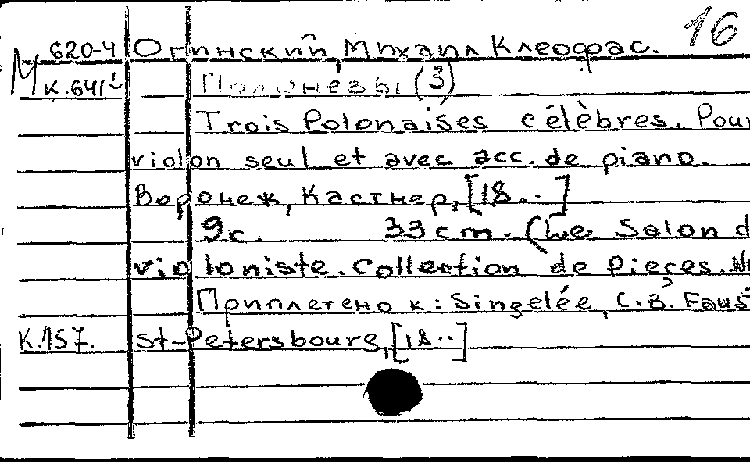 16
М 620-4 Огинский, Михаил Клеофас.
К.641 Полонезы (3)
Trois Polonaises célèbres. Pour
violon seul et avec acc. de piano.
Воронеж, Кастнер, [18..]
9с. 33 cm. (Le Salon d
violoniste. Collection de pieces.
Приплетено к: Singelée, С.В. Faus
К.157. St-Petersbourg, [18..]